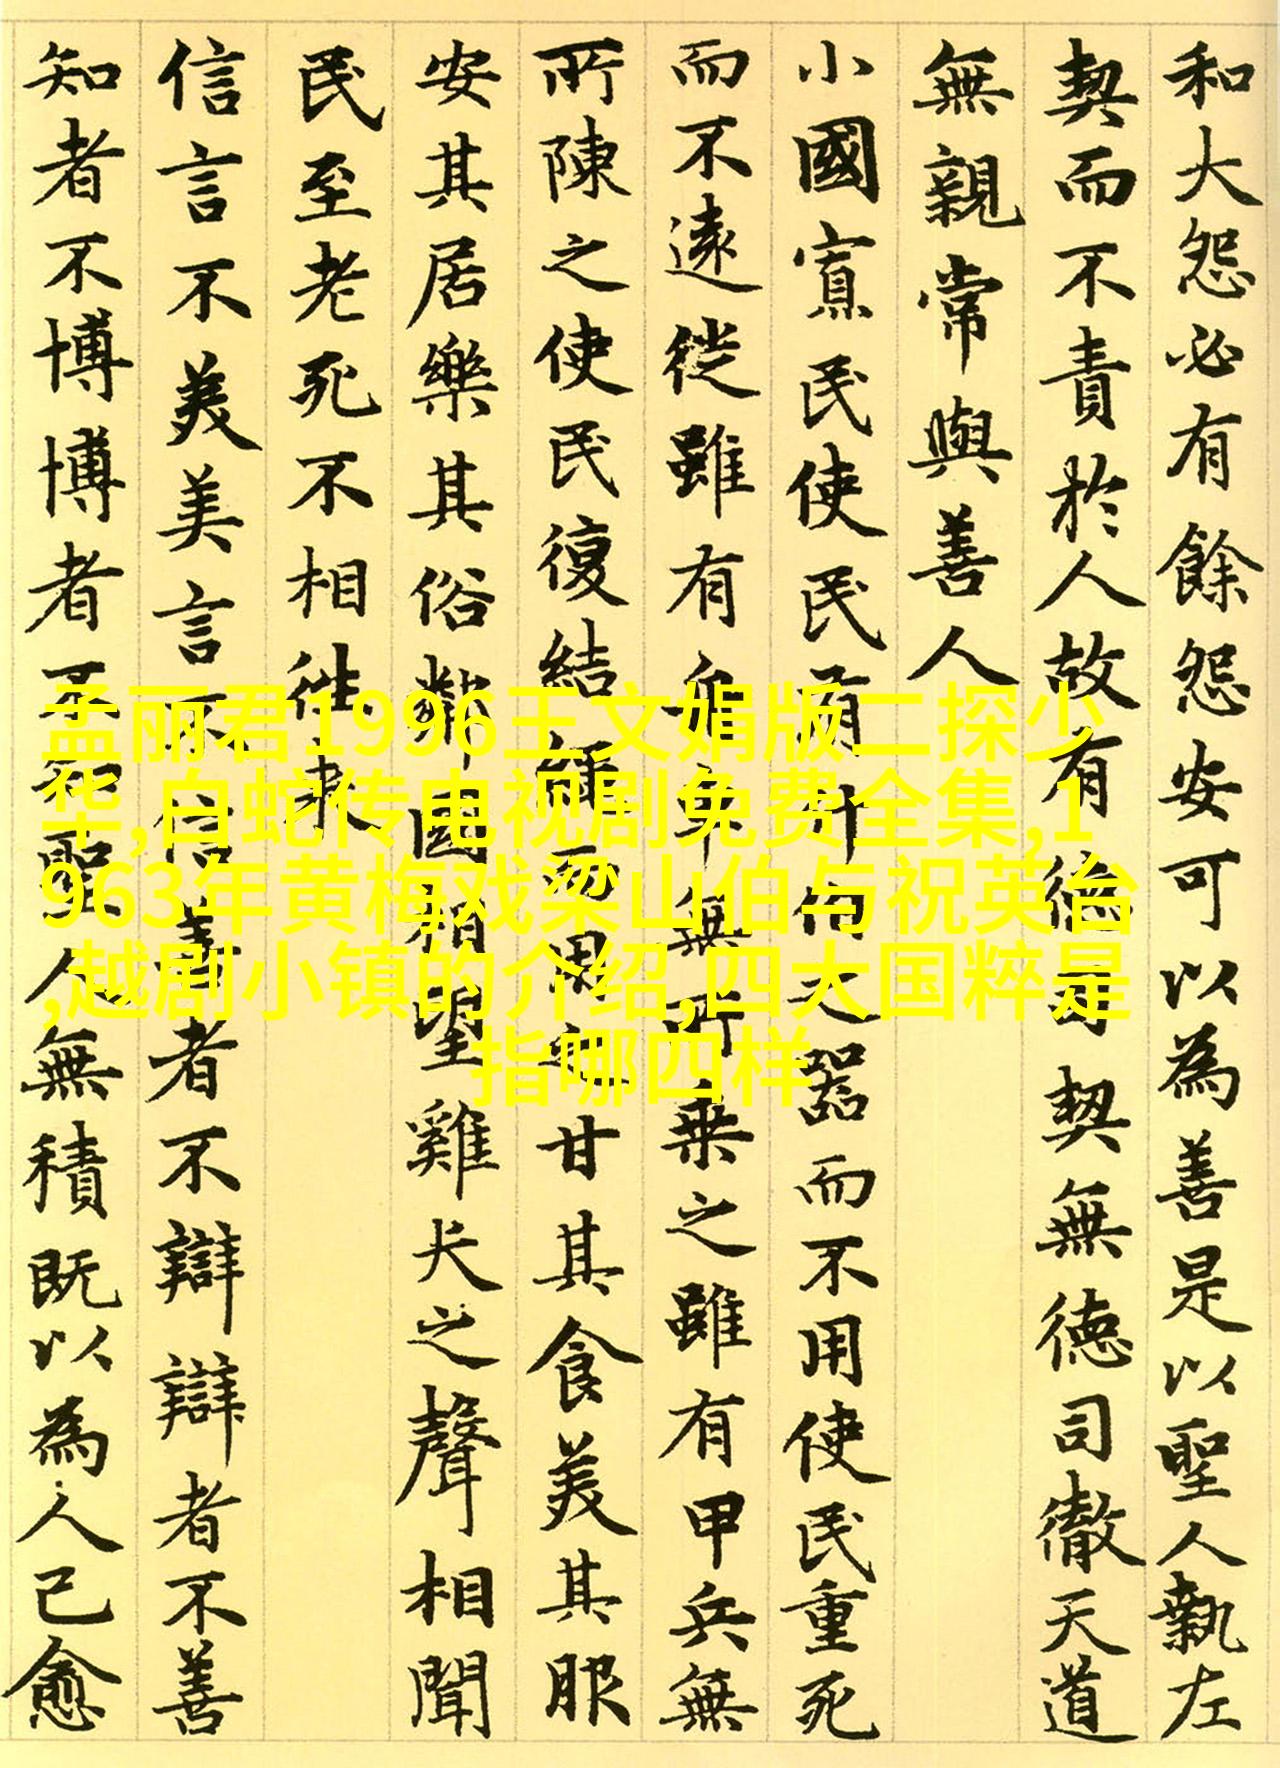 和大怨必有餘怨安可以為善是以聖人執左
契而不責於人故有德司契無德司徹天道
無親常與善人
小國寡民使民有什伯之器而不用使民重死
而不遠徙雖有舟車無所乗之雖有甲兵無
所陳之使民復結繩而用之甘其食美其服
安其居樂其俗鄰國相望雞犬之聲相聞
民至老死不相徃来
信言不美美言不信善者不辯辯者不善
知者不博博者不知聖人無積既以為人己愈
孟丽君1996王文娟版二探少
华,白蛇传电视剧免费全集,1
963年黄梅戏梁山伯与祝英台
,越剧小镇的介绍,四大国粹是
指哪四样